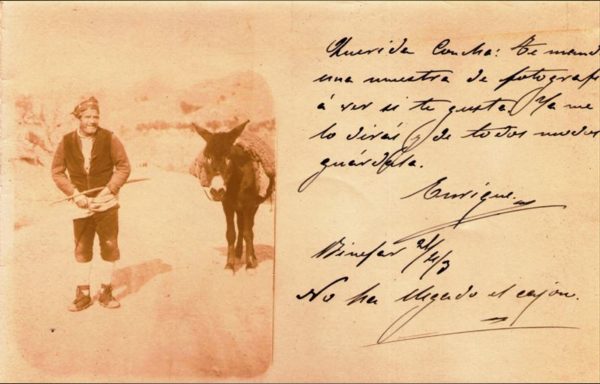 Querida Concha: te mand
una muestra de fotografi
á ver si te gusta Ya me
lo dirás y de todos modos
guárdala.
Enrique
Binefar 21/4/3
No ha llegado el cajon.